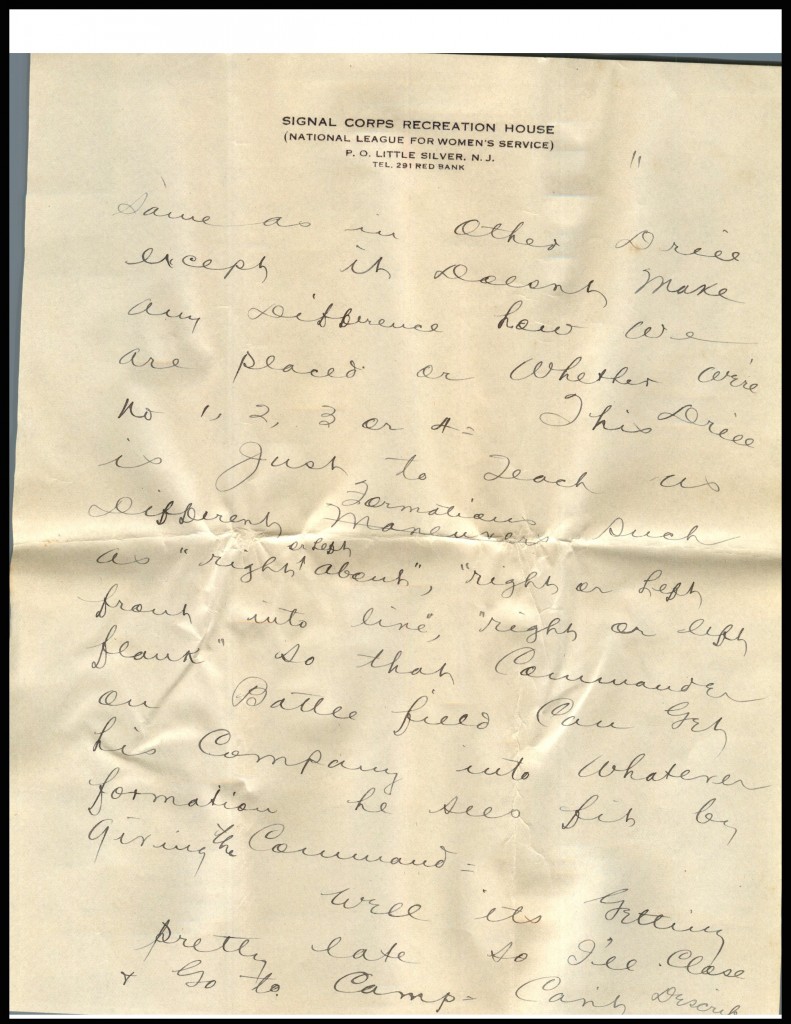 SIGNAL CORPS RECREATION HOUSE
(NATIONAL LEAGUE FOR WOMEN'S SERVICE)
P. O. LITTLE SILVER, N. J.
TEL. 291 RED BANK
"
Same as in Other Drill
except it Doesnt Make
any Difference how we
are placed or Whether We're
No 1, 2, 3 or 4 = This Drill
is Just to Teach us
Different Formations Maneuvers such
as "right or Left about", "right or Left
front into line", "right or left
flank" so that Commander
on Battle field Can Get
his Company into Whatever
formation he sees fit by
Giving the Command =
Well its Getting
pretty late so I'll Close
+ Go to Camp = Can't Describ